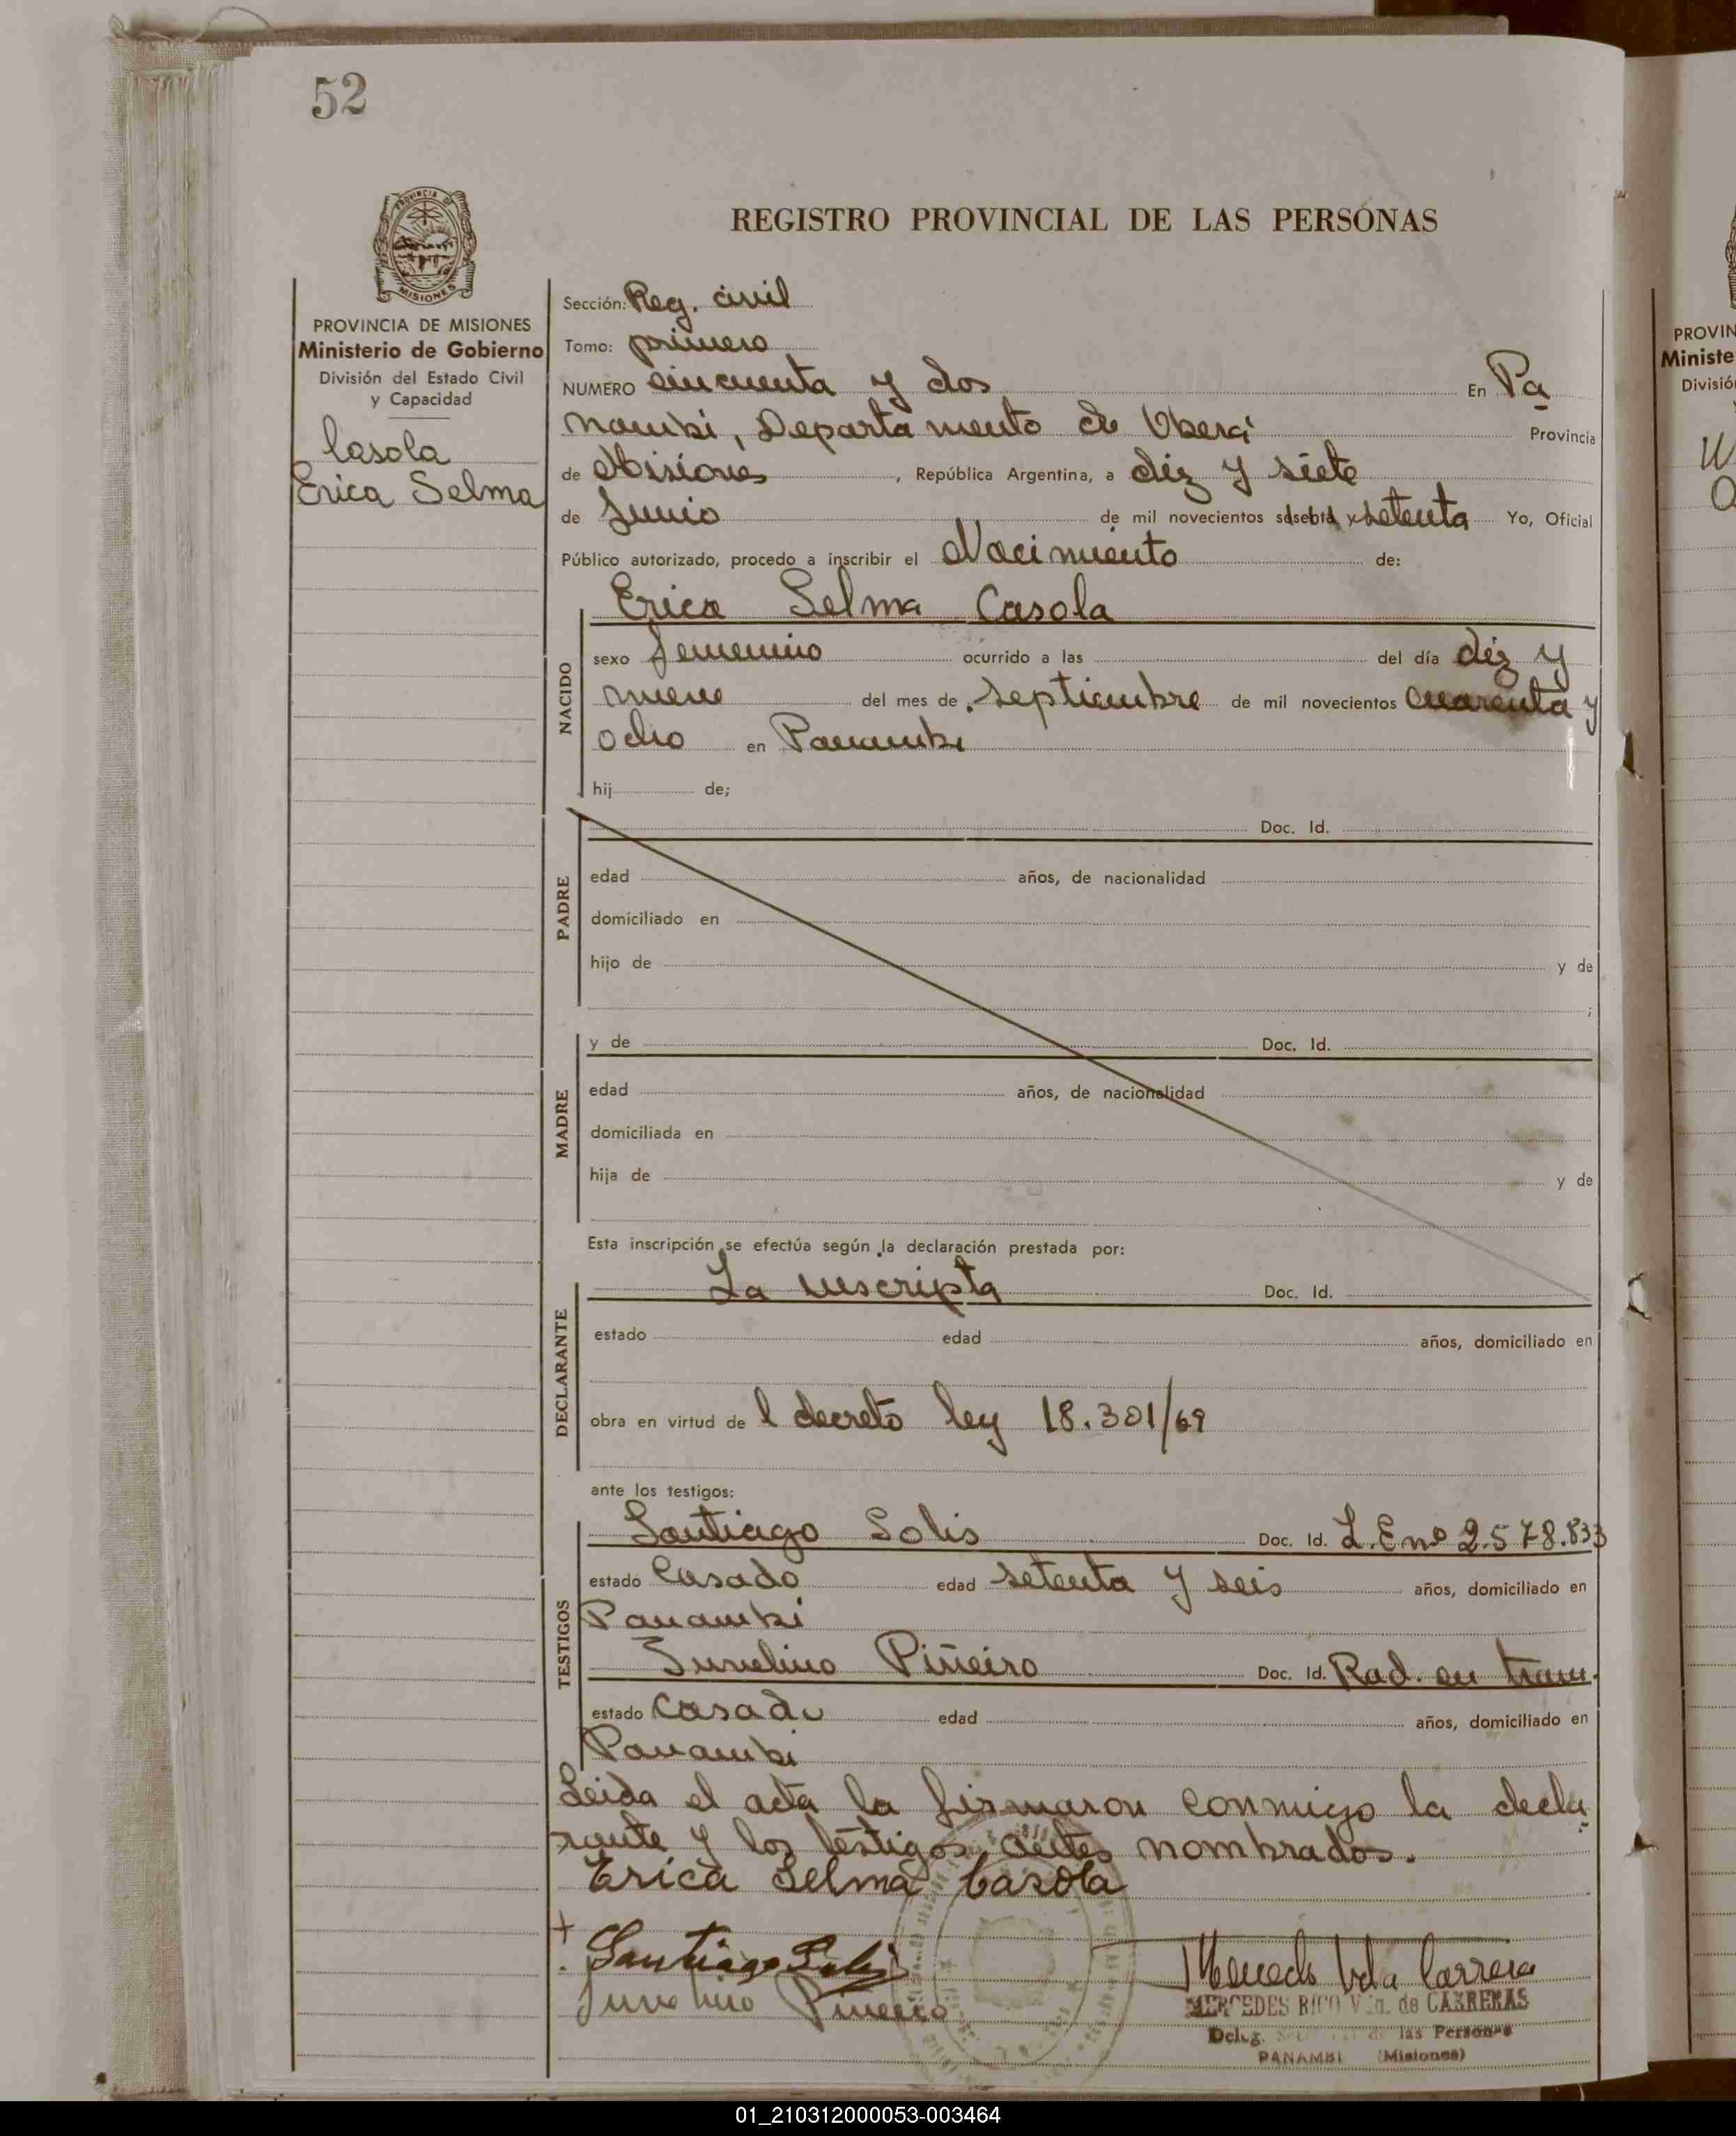 52
PROVINCIA DE
MISIONES
REGISTRO PROVINCIAL DE LAS PERSONAS
PROVINCIA DE MISIONES
Ministerio de Gobierno
División del Estado Civil
y Capacidad
Casola
Erica Selma
Sección: Reg. civil
Tomo: primero
NUMERO cincuenta y dos En Pa
nambi, Departamento de Oberá Provincia
de Misiones, República Argentina, a diz y siete
de Junio de mil novecientos sesenta y setenta Yo, Oficial
Público autorizado, procedo a inscribir el Nacimiento de:
Erica Selma Casola
NACIDO
sexo femenino ocurrido a las del día diz y
nueve del mes de septiembre de mil novecientos cuarenta y
ocho en Panambi
hij de;
PADRE
Doc. Id.
edad años, de nacionalidad
domiciliado en
hijo de y de
;
MADRE
y de Doc. Id.
edad años, de nacionalidad
domiciliada en
hija de y de
Esta inscripción se efectúa según la declaración prestada por:
DECLARANTE
La inscripta Doc. Id.
estado edad años, domiciliado en
obra en virtud de l decreto ley 18.301/69
ante los testigos:
TESTIGOS
Santiago Solis Doc. Id. L.E nº 2.578.833
estado Casado edad setenta y seis años, domiciliado en
Panambi
Juvelino Piñeiro Doc. Id. Rad. en tram.
estado Casado edad años, domiciliado en
Panambi
Leida el acta la firmaron conmigo la decla
rante y los testigos antes nombrados.
Erica Selma Casola
Santiago Solis
Juvelino Pineiro
Mercedes Vda Carrera
MERCEDES RICO Vda. de CARRERAS
Deleg. de las Personas
PANAMBI (Misiones)
PROVIN
Ministe
Divisió
01_210312000053-003464